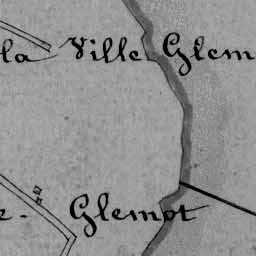 la Ville Glem
e. Glemot